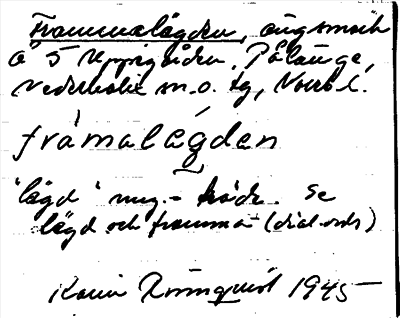 Frammalägden, ängsmark
å 5 Uppigården, Pålänge,
Nederkalix sn. o. tg, Norrb. l.
fràmalǽgden
'lägd' mug. - hådr. Se
lägd och framma (dial. ords)
Karin Rönnquist 1945